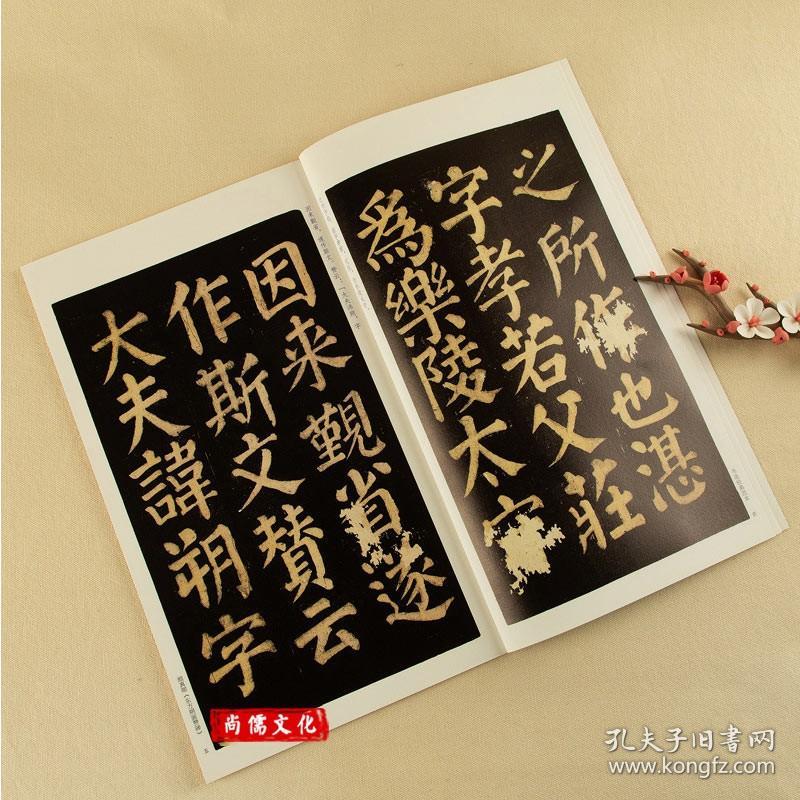 之所作也湛
字孝若父莊
為樂陵太守
因来覲省遂
作斯文贊云
大夫諱朔字
五
尚儒文化
孔夫子旧書网
www.kongfz.com